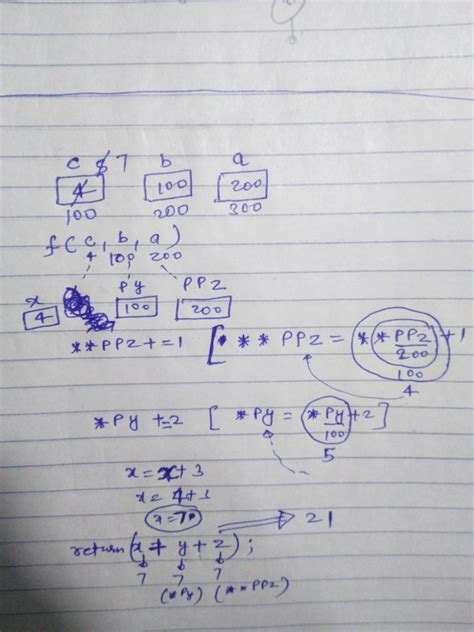 c 5 7 b a
4 100 200
100 200 300
f(c, b, a)
4 100 200
x py ppz
4 100 200
**ppz+=1 [ ** ppz = **ppz+1
200
100
4
*py +=2 [ *py = *py+2 ]
100
5
x = x+3
x = 4+3
x=7
21
return(x + y + z);
7 7 7
(*py) (**ppz)